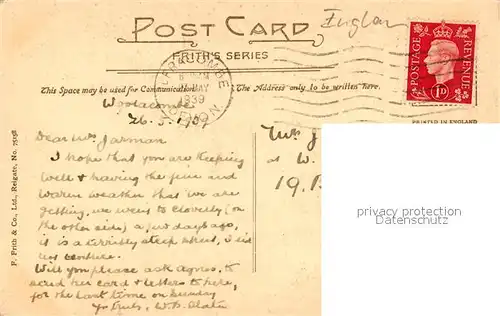 POST CARD
England
FRITH'S SERIES
ILFRACOMBE
MAY
1939
DEVON
POSTAGE
REVENUE
1D
This Space may be used for Communication.
The Address only to be written here.
PRINTED IN ENGLAND
F. Frith & Co., Ltd., Reigate, No.
Woolacombe
26.5.1939
Dear Mrs Jarman
I hope that you are keeping
well & having the fine and
warm weather that we are
getting, we went to Clovelly (on
the other side) a few days ago,
it is a terribly steep street, I did
not venture.
Will you please ask Agnes, to
send her card & letters to here,
for the last time on Sunday
yrs truly, W.
Mrs J
at W.
19.
privacy protection
www.veikkos-archiv.com